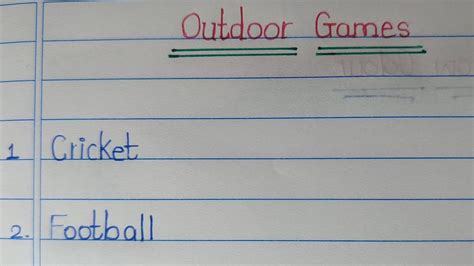 Outdoor Games
1 Cricket
2. Football